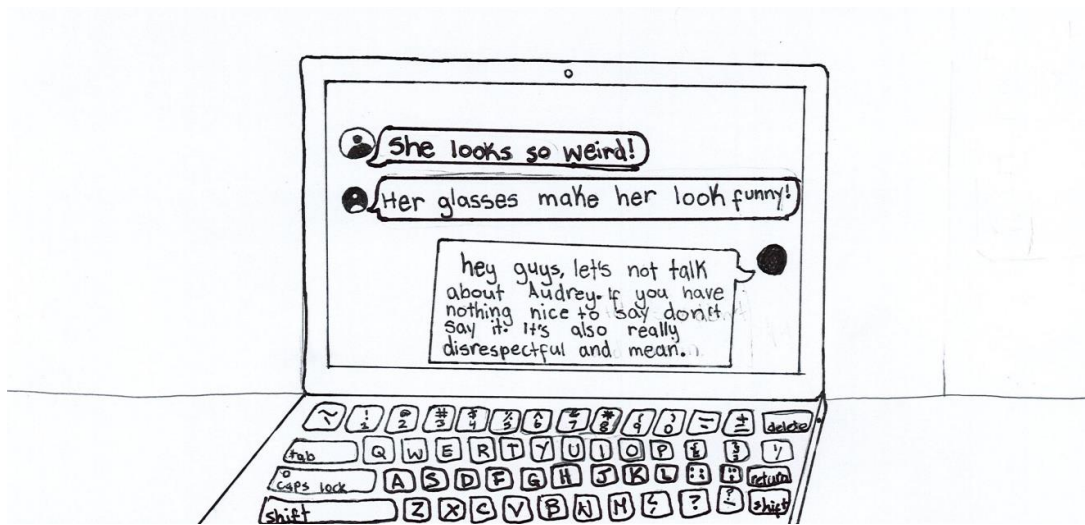 She looks so weird!
Her glasses make her look funny!
hey guys, let's not talk
about Audrey. If you have
nothing nice to say don't
say it. It's also really
disrespectful and mean.
~ ! 1 @ 2 # 3 $ 4 % 5 ^ 6 & 7 * 8 ( 9 ) 0 - + = delete
tab Q W E R T Y U I O P
caps lock A S D F G H J K L return
shift Z X C V B N M ? shift